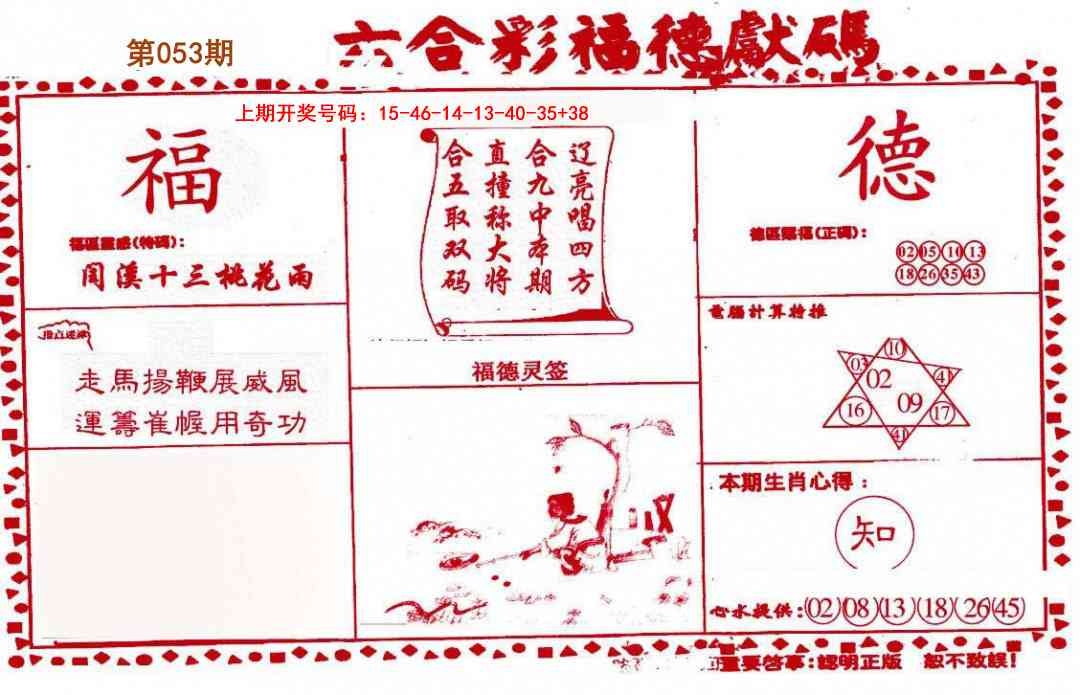 第053期
六合彩福德獻碼
上期开奖号码：15-46-14-13-40-35+38
福
福區靈感(特碼):
閏溪十三桃花雨
走馬揚鞭展威風
運籌崔幄用奇功
辽亮唱四方
合九中本期
直撞称大将
合五取双码
福德灵签
德
德區賜福(正碼):
02 05 10 13
18 26 35 43
電腦計算特推
10
03 02 41
16 09 17
41
本期生肖心得：
知
心水提供:(02)(08)(13)(18)(26)(45)
重要啓事:認明正版 恕不致誤!